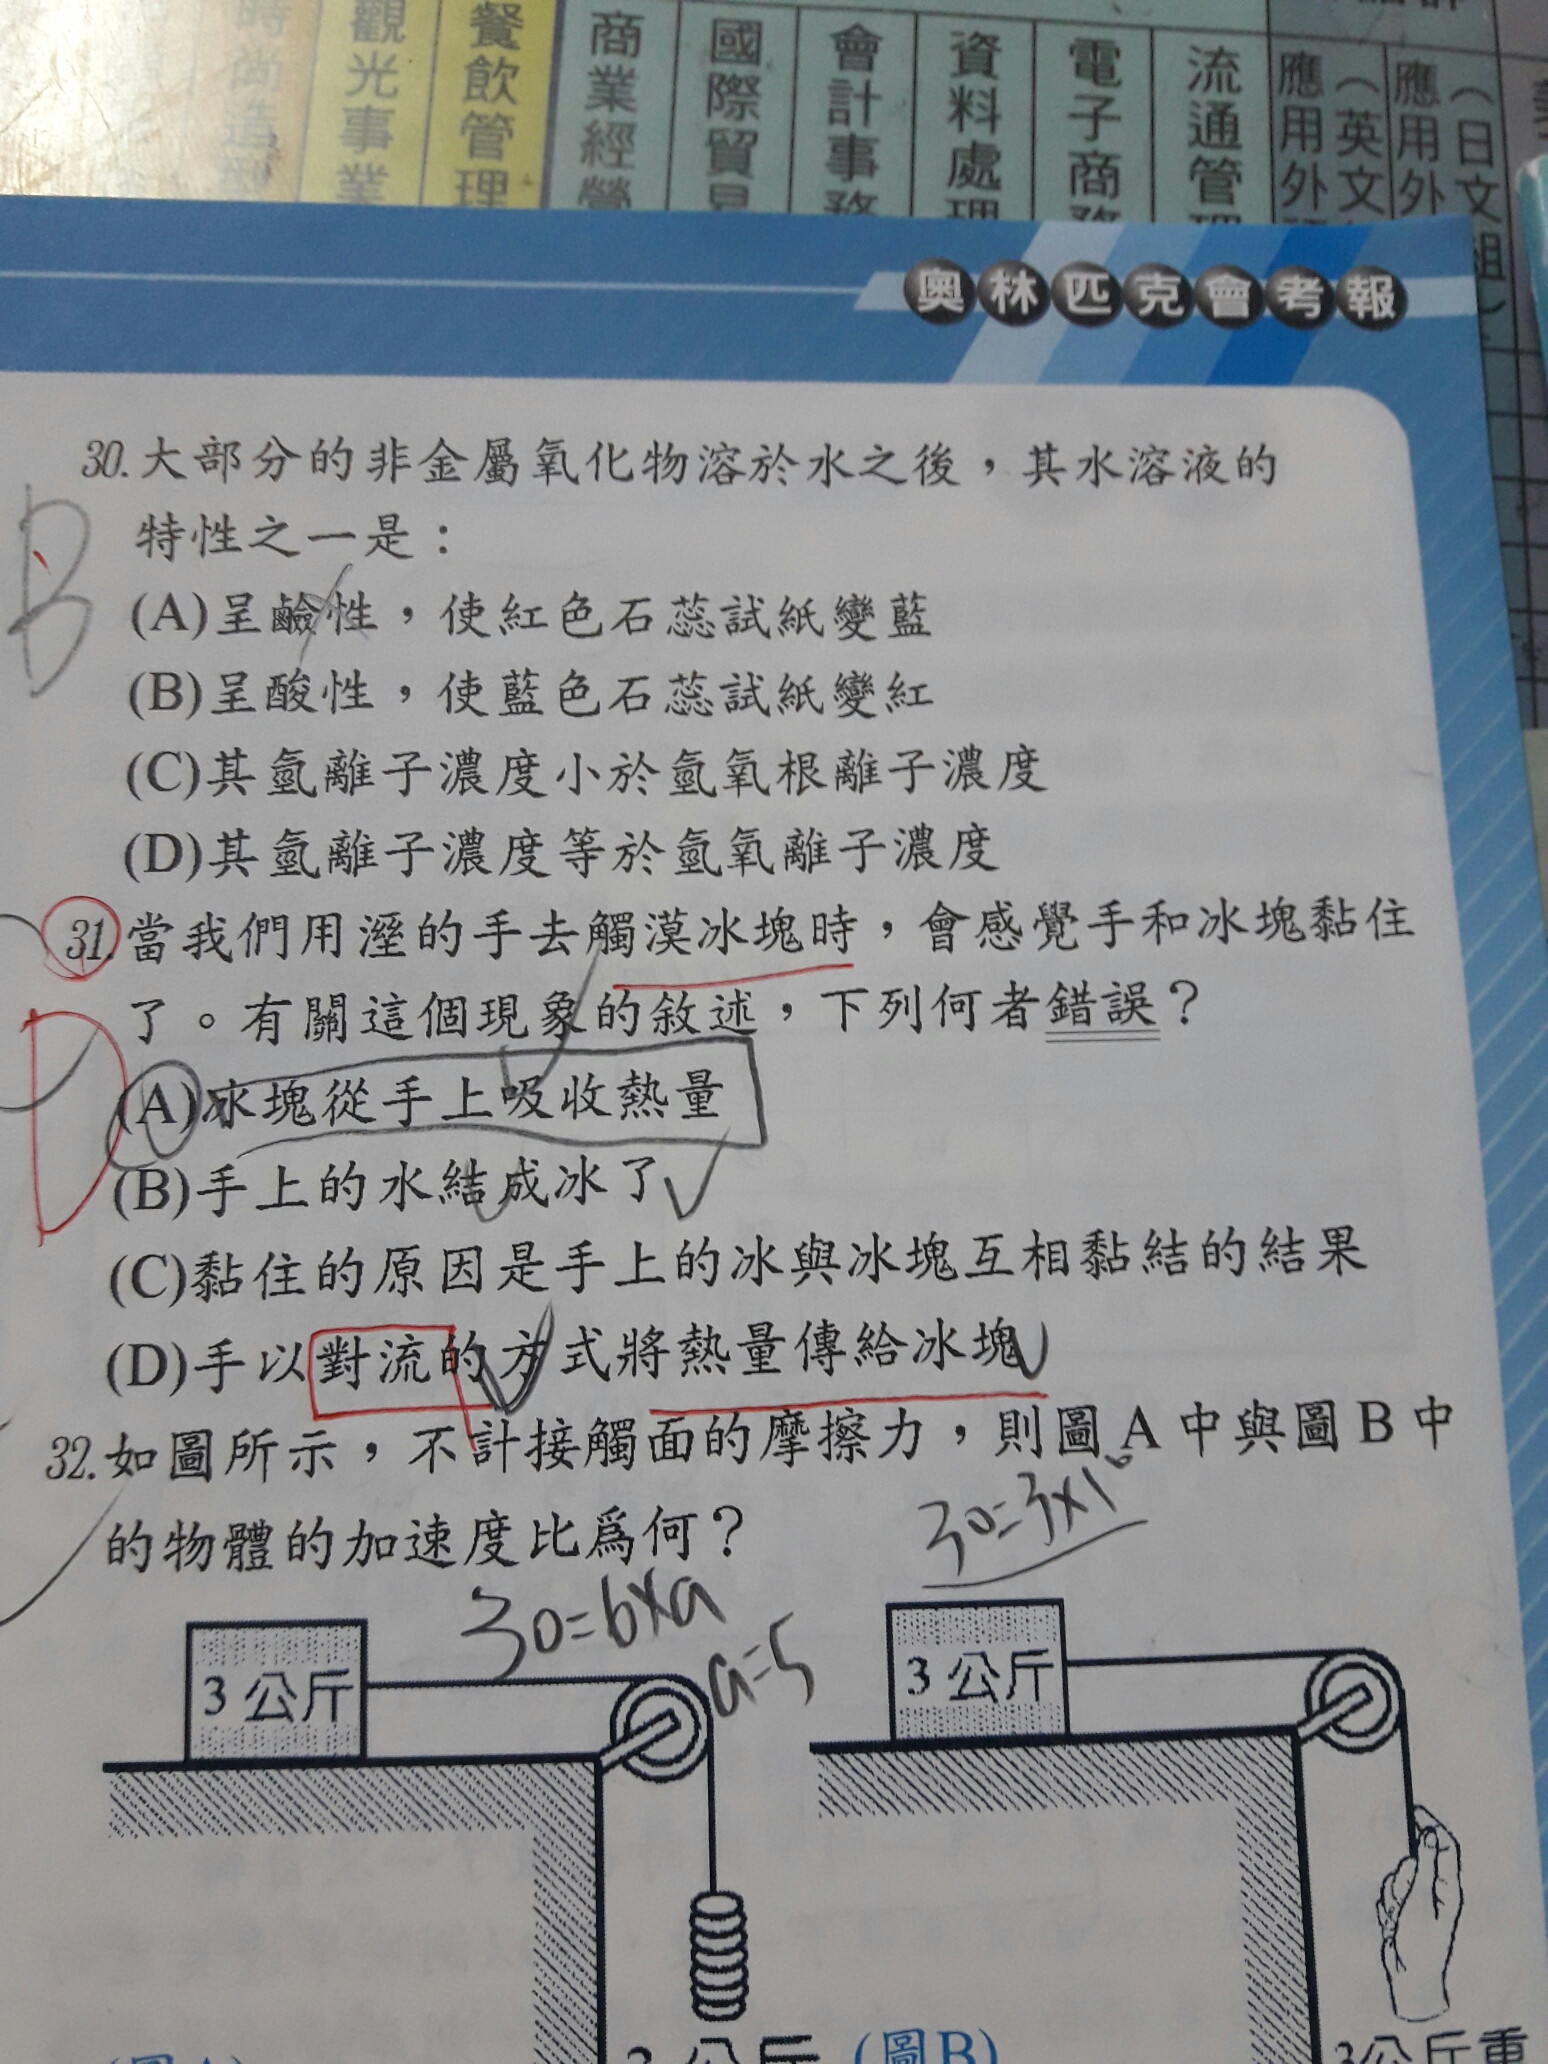 時尚造型
觀光事業
餐飲管理
商業經營
國際貿易
會計事務
資料處理
電子商務
流通管理
應用外
（英文
應用外
（日文組）
奧林匹克會考報
30.大部分的非金屬氧化物溶於水之後，其水溶液的
特性之一是：
B
(A)呈鹼性，使紅色石蕊試紙變藍
(B)呈酸性，使藍色石蕊試紙變紅
(C)其氫離子濃度小於氫氧根離子濃度
(D)其氫離子濃度等於氫氧離子濃度
31.當我們用溼的手去觸漠冰塊時，會感覺手和冰塊黏住
了。有關這個現象的敘述，下列何者錯誤？
D
(A)冰塊從手上吸收熱量
(B)手上的水結成冰了
(C)黏住的原因是手上的冰與冰塊互相黏結的結果
(D)手以對流的方式將熱量傳給冰塊
32.如圖所示，不計接觸面的摩擦力，則圖A中與圖B中
的物體的加速度比爲何？
30=3×10
30=6×a
a=5
3公斤
3公斤
3公斤
(圖A)
(圖B)
3公斤重